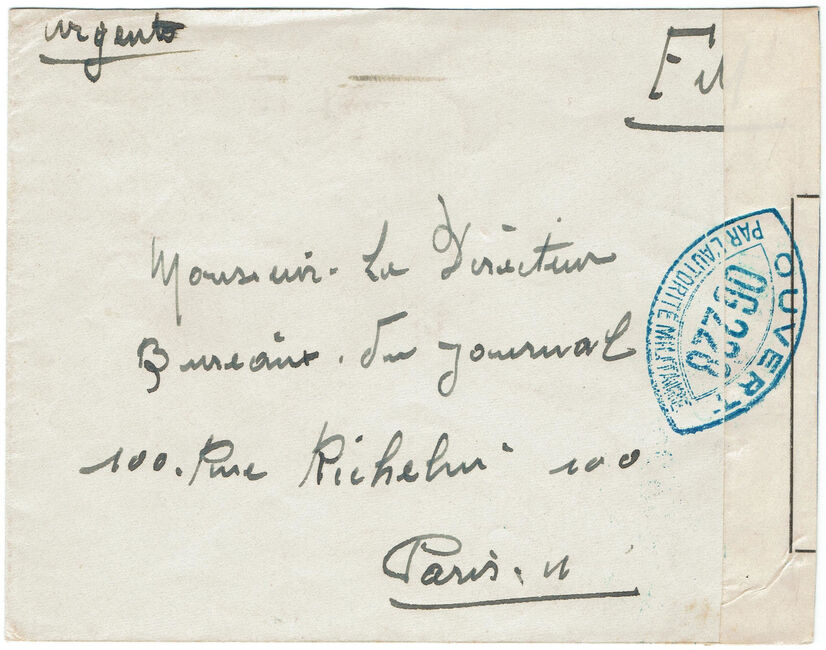 urgente
F.M
Monsieur. Le Directeur
Bureaux. du journal
100. Rue Richelieu 100
Paris. II
OUVERT
PAR L'AUTORITÉ MILITAIRE